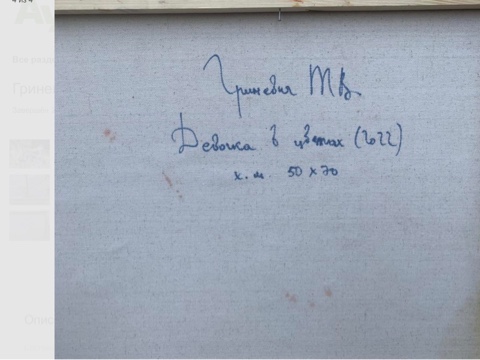 Гриневич Т В
Девочка в цветах (2022)
х.м. 50 х 70